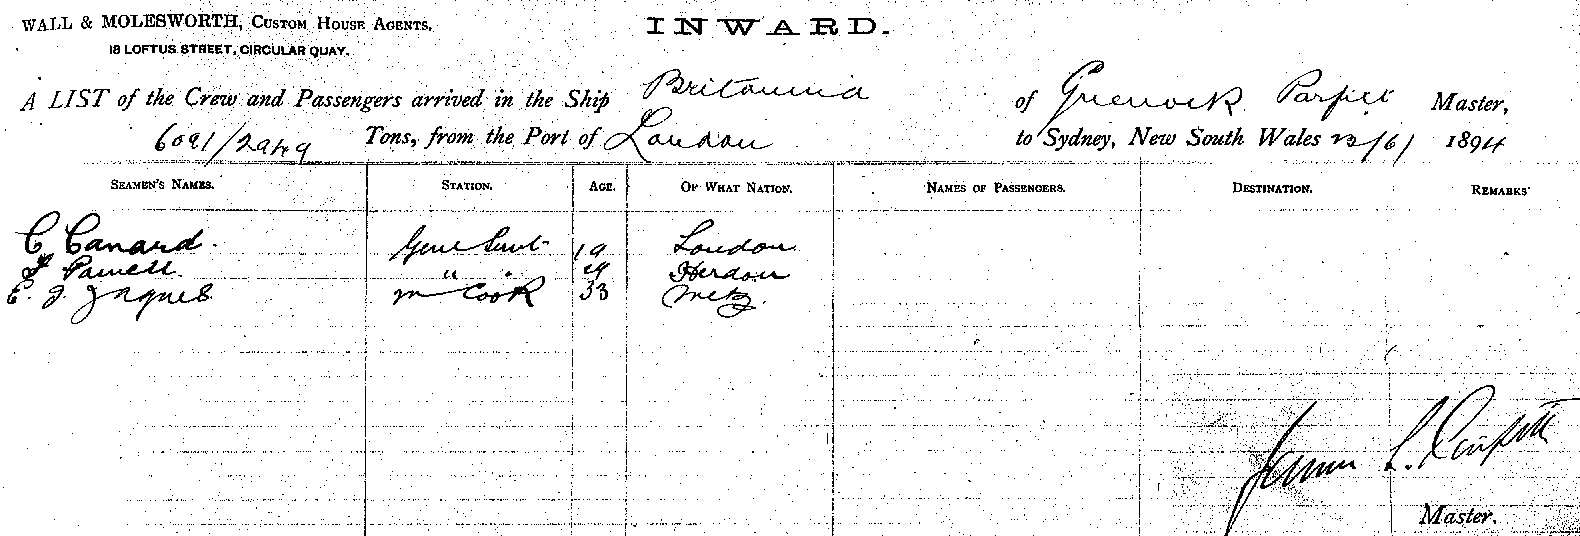 WALL & MOLESWORTH, CUSTOM HOUSE AGENTS.
18 LOFTUS STREET, CIRCULAR QUAY.
INWARD.
A LIST of the Crew and Passengers arrived in the Ship Britannia of Greenock Parfitt Master,
6091/2949 Tons, from the Port of London to Sydney, New South Wales 13/6/ 1894
SEAMEN'S NAMES. STATION. AGE. OF WHAT NATION. NAMES OF PASSENGERS. DESTINATION. REMARKS
C Canard. Genl Servt 19 London
Pawell. " "
E. J. Jaques m Cook 33 Metz.
James L. Parfitt
Master.